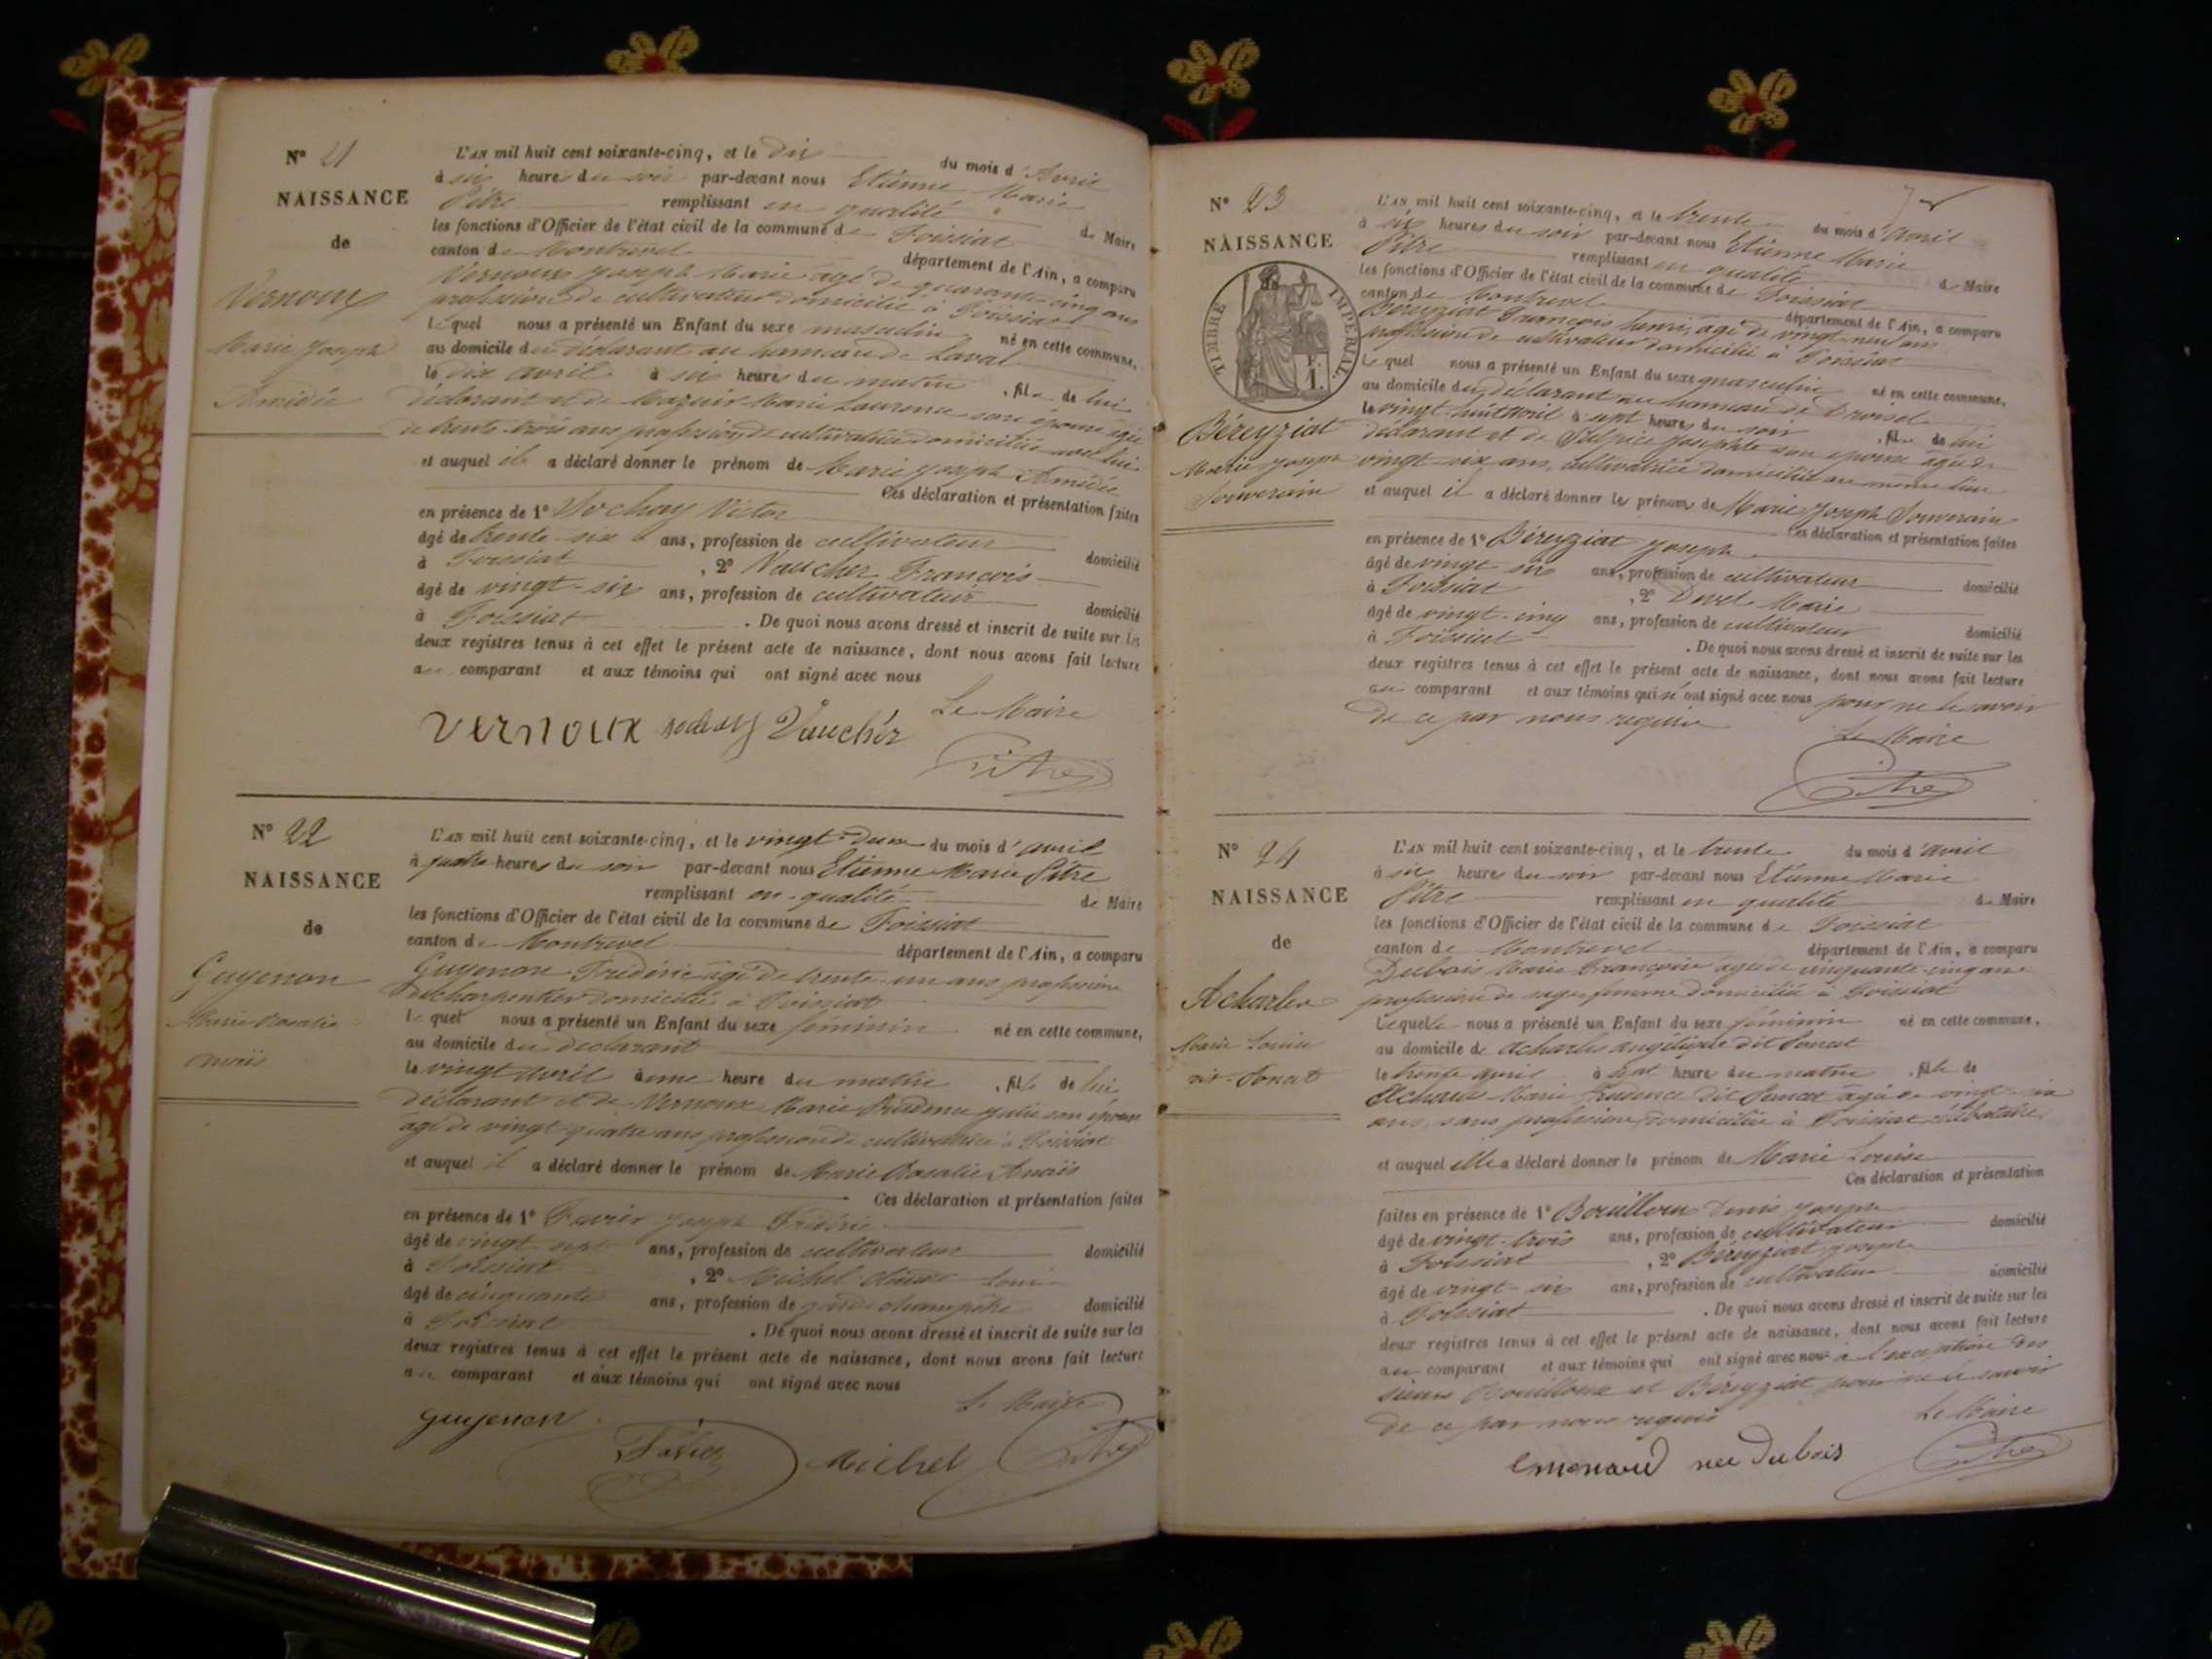 N° 21
NAISSANCE
de
Vernoux
Marie Joseph
Amédée
L'AN mil huit cent soixante-cinq, et le dix du mois d'Avril
à six heures du soir par-devant nous Etienne Marie
Pitre remplissant en qualité de Maire
les fonctions d'Officier de l'état civil de la commune de Foissiat
canton de Montrevel département de l'Ain, a comparu
Vernoux Joseph Marie agé de quarante-cinq ans
profession de cultivateur domicilié à Foissiat
lequel nous a présenté un Enfant du sexe masculin né en cette commune,
au domicile du déclarant au hameau de Laval
le dix avril à six heures du matin, fils de lui
déclarant et de Marie Laurence son épouse agée
de trente-trois ans profession de cultivatrice domiciliée avec lui
et auquel il a déclaré donner le prénom de Marie Joseph Amédée
Ces déclaration et présentation faites
en présence de 1° Sochay Victor
âgé de trente-six ans, profession de cultivateur domicilié
à Foissiat, 2° Vaucher François
âgé de vingt-six ans, profession de cultivateur domicilié
à Foissiat. De quoi nous avons dressé et inscrit de suite sur les
deux registres tenus à cet effet le présent acte de naissance, dont nous avons fait lecture
au comparant et aux témoins qui ont signé avec nous
Le Maire
Vernoux Sochay Vaucher
Pitre
N° 22
NAISSANCE
de
Guyenon
Marie Rosalie
Anaïs
L'AN mil huit cent soixante-cinq, et le vingt-deux du mois d'avril
à quatre heures du soir par-devant nous Etienne Marie Pitre
remplissant en qualité de Maire
les fonctions d'Officier de l'état civil de la commune de Foissiat
canton de Montrevel département de l'Ain, a comparu
Guyenon Frédéric agé de trente-un ans profession
de charpentier domicilié à Foissiat
lequel nous a présenté un Enfant du sexe féminin né en cette commune,
au domicile du déclarant
le vingt avril à une heure du matin, fille de lui
déclarant et de Vernoux Marie Prudence Julie son épouse
agé de vingt-quatre ans profession de cultivatrice à Foissiat
et auquel il a déclaré donner le prénom de Marie Rosalie Anaïs
Ces déclaration et présentation faites
en présence de 1° Favier Joseph Frédéric
âgé de vingt-sept ans, profession de cultivateur domicilié
à Foissiat, 2° Michel Claude Louis
âgé de cinquante ans, profession de garde-champêtre domicilié
à Foissiat. De quoi nous avons dressé et inscrit de suite sur les
deux registres tenus à cet effet le présent acte de naissance, dont nous avons fait lecture
au comparant et aux témoins qui ont signé avec nous
Le Maire
guyenon Favier Michel Pitre
N° 23
NAISSANCE
TIMBRE IMPERIAL
Béreyziat
Marie Joseph
Souverain
L'AN mil huit cent soixante-cinq, et le trente du mois d'avril
à six heures du soir par-devant nous Etienne Marie
Pitre remplissant en qualité de Maire
les fonctions d'Officier de l'état civil de la commune de Foissiat
canton de Montrevel département de l'Ain, a comparu
Béreyziat François henri, agé de vingt-neuf ans
profession de cultivateur domicilié à Foissiat
lequel nous a présenté un Enfant du sexe masculin né en cette commune,
au domicile du déclarant au hameau de
le vingt-huit avril à sept heures du soir, fils de lui
déclarant et de Sulpice Josephte son épouse agée de
vingt-six ans, cultivatrice domiciliée au même lieu
et auquel il a déclaré donner les prénoms de Marie Joseph Souverain
Ces déclaration et présentation faites
en présence de 1° Béreyziat Joseph
âgé de vingt six ans, profession de cultivateur domicilié
à Foissiat, 2° Marie
âgé de vingt-cinq ans, profession de cultivateur domicilié
à Foissiat. De quoi nous avons dressé et inscrit de suite sur les
deux registres tenus à cet effet le présent acte de naissance, dont nous avons fait lecture
au comparant et aux témoins qui n'ont signé avec nous pour ne le savoir
de ce par nous requis
Le Maire
Pitre
N° 24
NAISSANCE
de
Acharles
Marie Louise
dit Soncet
L'AN mil huit cent soixante-cinq, et le trente du mois d'avril
à six heures du soir par-devant nous Etienne Marie
Pitre remplissant en qualité de Maire
les fonctions d'Officier de l'état civil de la commune de Foissiat
canton de Montrevel département de l'Ain, a comparu
Dubois Marie Françoise agée de cinquante-cinq ans
profession de sage-femme domiciliée à Foissiat
Lequelle nous a présenté un Enfant du sexe féminin né en cette commune,
au domicile de Acharles angélique dit
le trente avril à sept heure du matin, fille de
Acharles Marie Prudence dit agée de vingt-six
ans, sans profession domiciliée à Foissiat célibataire
et auquel elle a déclaré donner le prénom de Marie Louise
Ces déclaration et présentation
faites en présence de 1° Bouilloux Denis Joseph
âgé de vingt-trois ans, profession de cultivateur domicilié
à Foissiat, 2° Béreyziat Joseph
âgé de vingt-six ans, profession de cultivateur domicilié
à Foissiat. De quoi nous avons dressé et inscrit de suite sur les
deux registres tenus à cet effet le présent acte de naissance, dont nous avons fait lecture
au comparant et aux témoins qui ont signé avec nous à l'exception des
sieurs Bouilloux et Béreyziat pour ne le savoir
de ce par nous requis
Le Maire
née Dubois Pitre